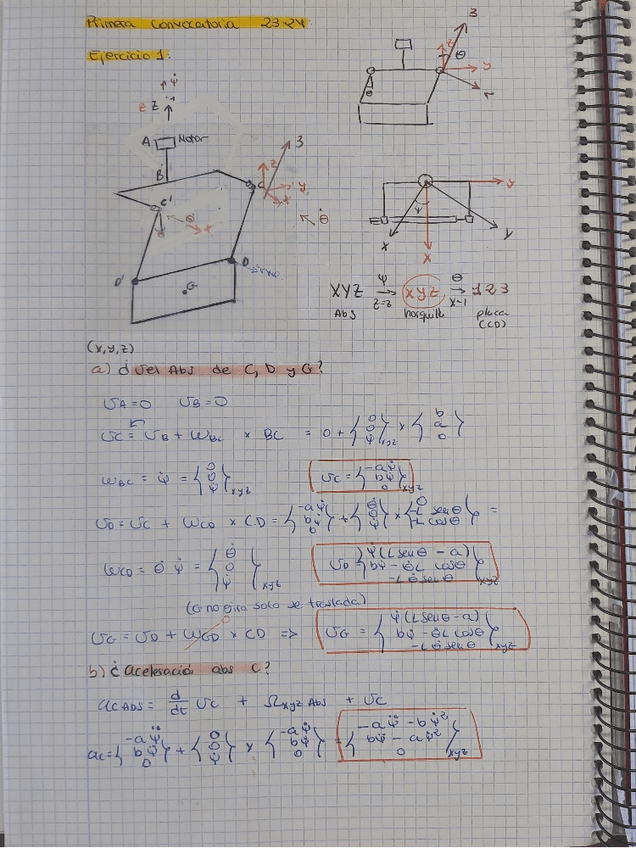 Primera Convocatoria 23-24
Ejercicio 1:
3
z
θ
y
θ
r
ψ̇
z Z
A
Motor
B
3
C
z
y
x
C'
θ̇
x
θ̇
D
D'
G
y
ψ
x
X
Y
XYZ ψ→ z=z xyz θ→ x=1 123
Abs horquilla placa
(CD)
(x,y,z)
a) ¿Vel Abs de C, D y G?
υA=0 υB=0
υC = υB + ωBC × BC = 0 + {0 0 ψ̇}xyz × {b a 0}
ωBC = ψ̇ = {0 0 ψ̇}xyz υC = {-aψ̇ bψ̇ 0}xyz
υD = υC + ωCD × CD = {-aψ̇ bψ̇ 0} + {θ̇ 0 ψ̇} × {0 -L senθ -L cosθ} =
ωCD = θ̇ ψ̇ = {θ̇ 0 ψ̇}xyz υD {ψ̇(L senθ - a) bψ̇ -θ̇L cosθ -L θ̇ senθ}xyz
(G no gira solo se traslada)
υG = υD + ωGD × CD => υG = {ψ̇(L senθ - a) bψ̇ - θ̇L cosθ -L θ̇ senθ}xyz
b) ¿Aceleració abs C?
aC ABS = d/dt υC + Ωxyz Abs + υC
aC = {-aψ̈ bψ̈ 0} + {0 0 ψ̇} × {-aψ̇ bψ̇ 0} = {-aψ̈ - bψ̇² bψ̈ - aψ̇² 0}xyz